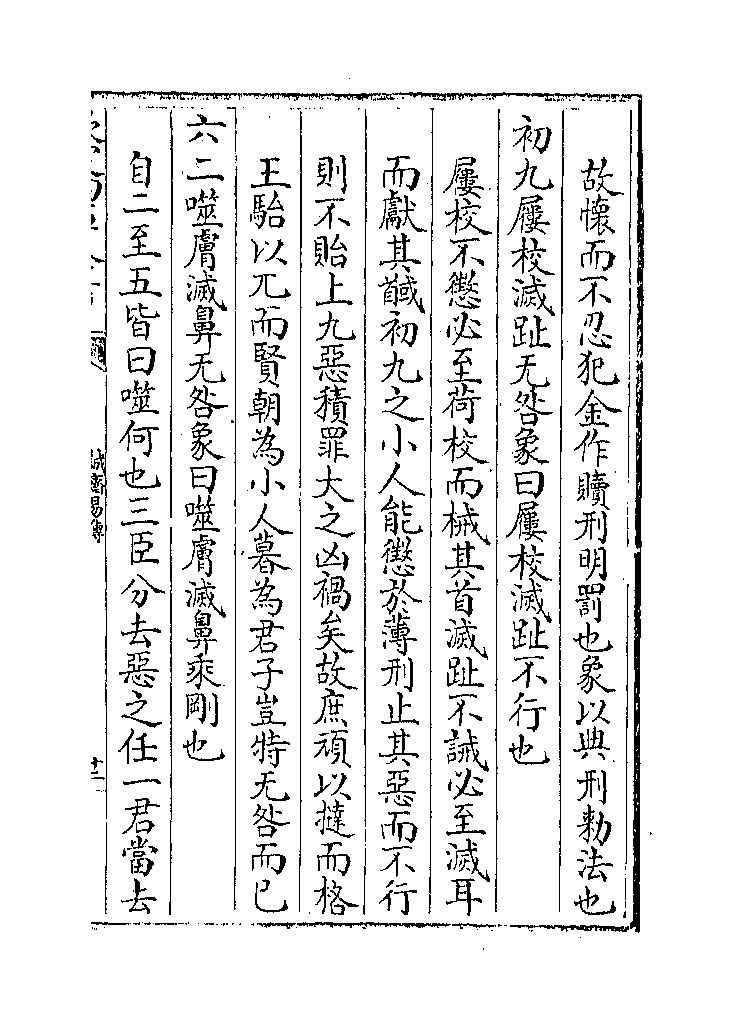 故懷而不忍犯金作贖刑明罰也象以典刑勅法也
初九屨校滅趾无咎象曰屨校滅趾不行也
屨校不懲必至荷校而械其首滅趾不誡必至滅耳
而獻其馘初九之小人能懲於薄刑止其惡而不行
則不貽上九惡積罪大之凶禍矣故庶頑以撻而格
王駘以兀而賢朝為小人暮為君子豈特无咎而已
六二噬膚滅鼻无咎象曰噬膚滅鼻乘剛也
自二至五皆曰噬何也三臣分去惡之任一君當去
誠齋易傳
十二